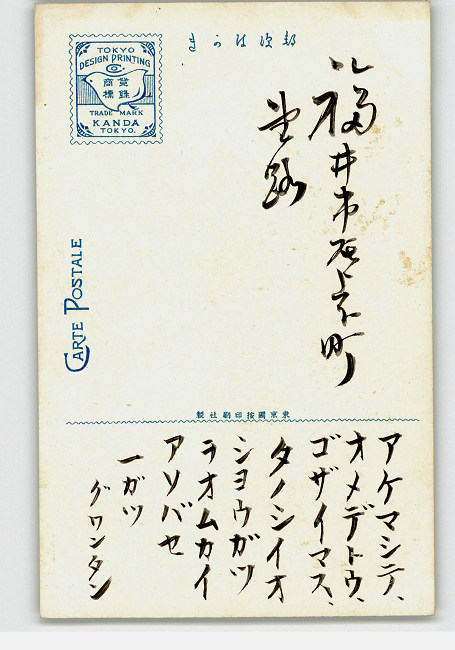 郵便はかき
TOKYO
DESIGN PRINTING
登録
商標
TRADE MARK
KANDA
TOKYO.
福井市町
CARTE POSTALE
東京圖按印刷社製
アケマシテ、
オメデトウ、
ゴザイマス、
タノシイオ
シヨウガツ
ヲオムカイ
アソバセ
一ガツ
グワンタン